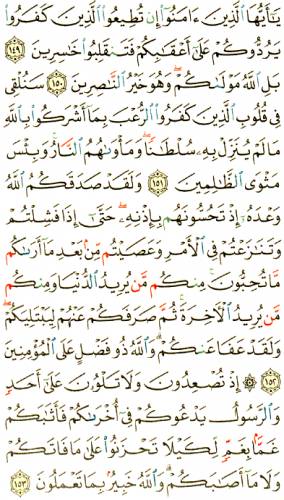 يَـٰٓأَيُّهَا ٱلَّذِينَ ءَامَنُوٓا۟ إِن تُطِيعُوا۟ ٱلَّذِينَ كَفَرُوا۟
يَرُدُّوكُمْ عَلَىٰٓ أَعْقَـٰبِكُمْ فَتَنقَلِبُوا۟ خَـٰسِرِينَ
١٤٩ بَلِ ٱللَّهُ مَوْلَىٰكُمْ ۖ وَهُوَ خَيْرُ ٱلنَّـٰصِرِينَ ١٥٠ سَنُلْقِى
فِى قُلُوبِ ٱلَّذِينَ كَفَرُوا۟ ٱلرُّعْبَ بِمَآ أَشْرَكُوا۟ بِٱللَّهِ
مَا لَمْ يُنَزِّلْ بِهِۦ سُلْطَـٰنًا ۖ وَمَأْوَىٰهُمُ ٱلنَّارُ ۚ وَبِئْسَ
مَثْوَى ٱلظَّـٰلِمِينَ ١٥١ وَلَقَدْ صَدَقَكُمُ ٱللَّهُ
وَعْدَهُۥٓ إِذْ تَحُسُّونَهُم بِإِذْنِهِۦ ۖ حَتَّىٰٓ إِذَا فَشِلْتُمْ
وَتَنَـٰزَعْتُمْ فِى ٱلْأَمْرِ وَعَصَيْتُم مِّنۢ بَعْدِ مَآ أَرَىٰكُم
مَّا تُحِبُّونَ ۚ مِنكُم مَّن يُرِيدُ ٱلدُّنْيَا وَمِنكُم
مَّن يُرِيدُ ٱلْـَٔاخِرَةَ ۚ ثُمَّ صَرَفَكُمْ عَنْهُمْ لِيَبْتَلِيَكُمْ ۖ
وَلَقَدْ عَفَا عَنكُمْ ۗ وَٱللَّهُ ذُو فَضْلٍ عَلَى ٱلْمُؤْمِنِينَ
١٥٢ ۞ إِذْ تُصْعِدُونَ وَلَا تَلْوُۥنَ عَلَىٰٓ أَحَدٍ
وَٱلرَّسُولُ يَدْعُوكُمْ فِىٓ أُخْرَىٰكُمْ فَأَثَـٰبَكُمْ
غَمًّۢا بِغَمٍّ لِّكَيْلَا تَحْزَنُوا۟ عَلَىٰ مَا فَاتَكُمْ
وَلَا مَآ أَصَـٰبَكُمْ ۗ وَٱللَّهُ خَبِيرٌۢ بِمَا تَعْمَلُونَ ١٥٣